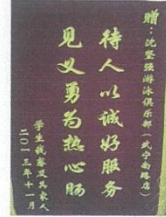 赠：沈坚强游泳俱乐部（武宁南路店）
待人以诚好服务
见义勇为热心肠
学生钱睿及其家人
二〇一三年十一月